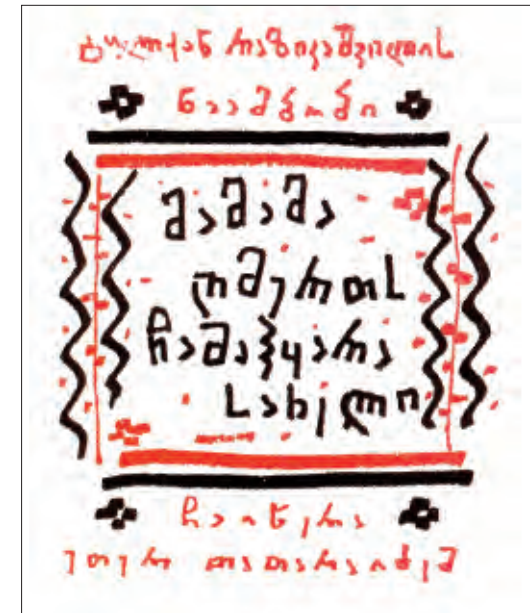 გულქან რაზიკაშვილის
ნაამბობი
მამამა
ღმერთს
ჩამაჰყარა
სახელი
ჩაიწერა
ეთერ თათარაიძემ